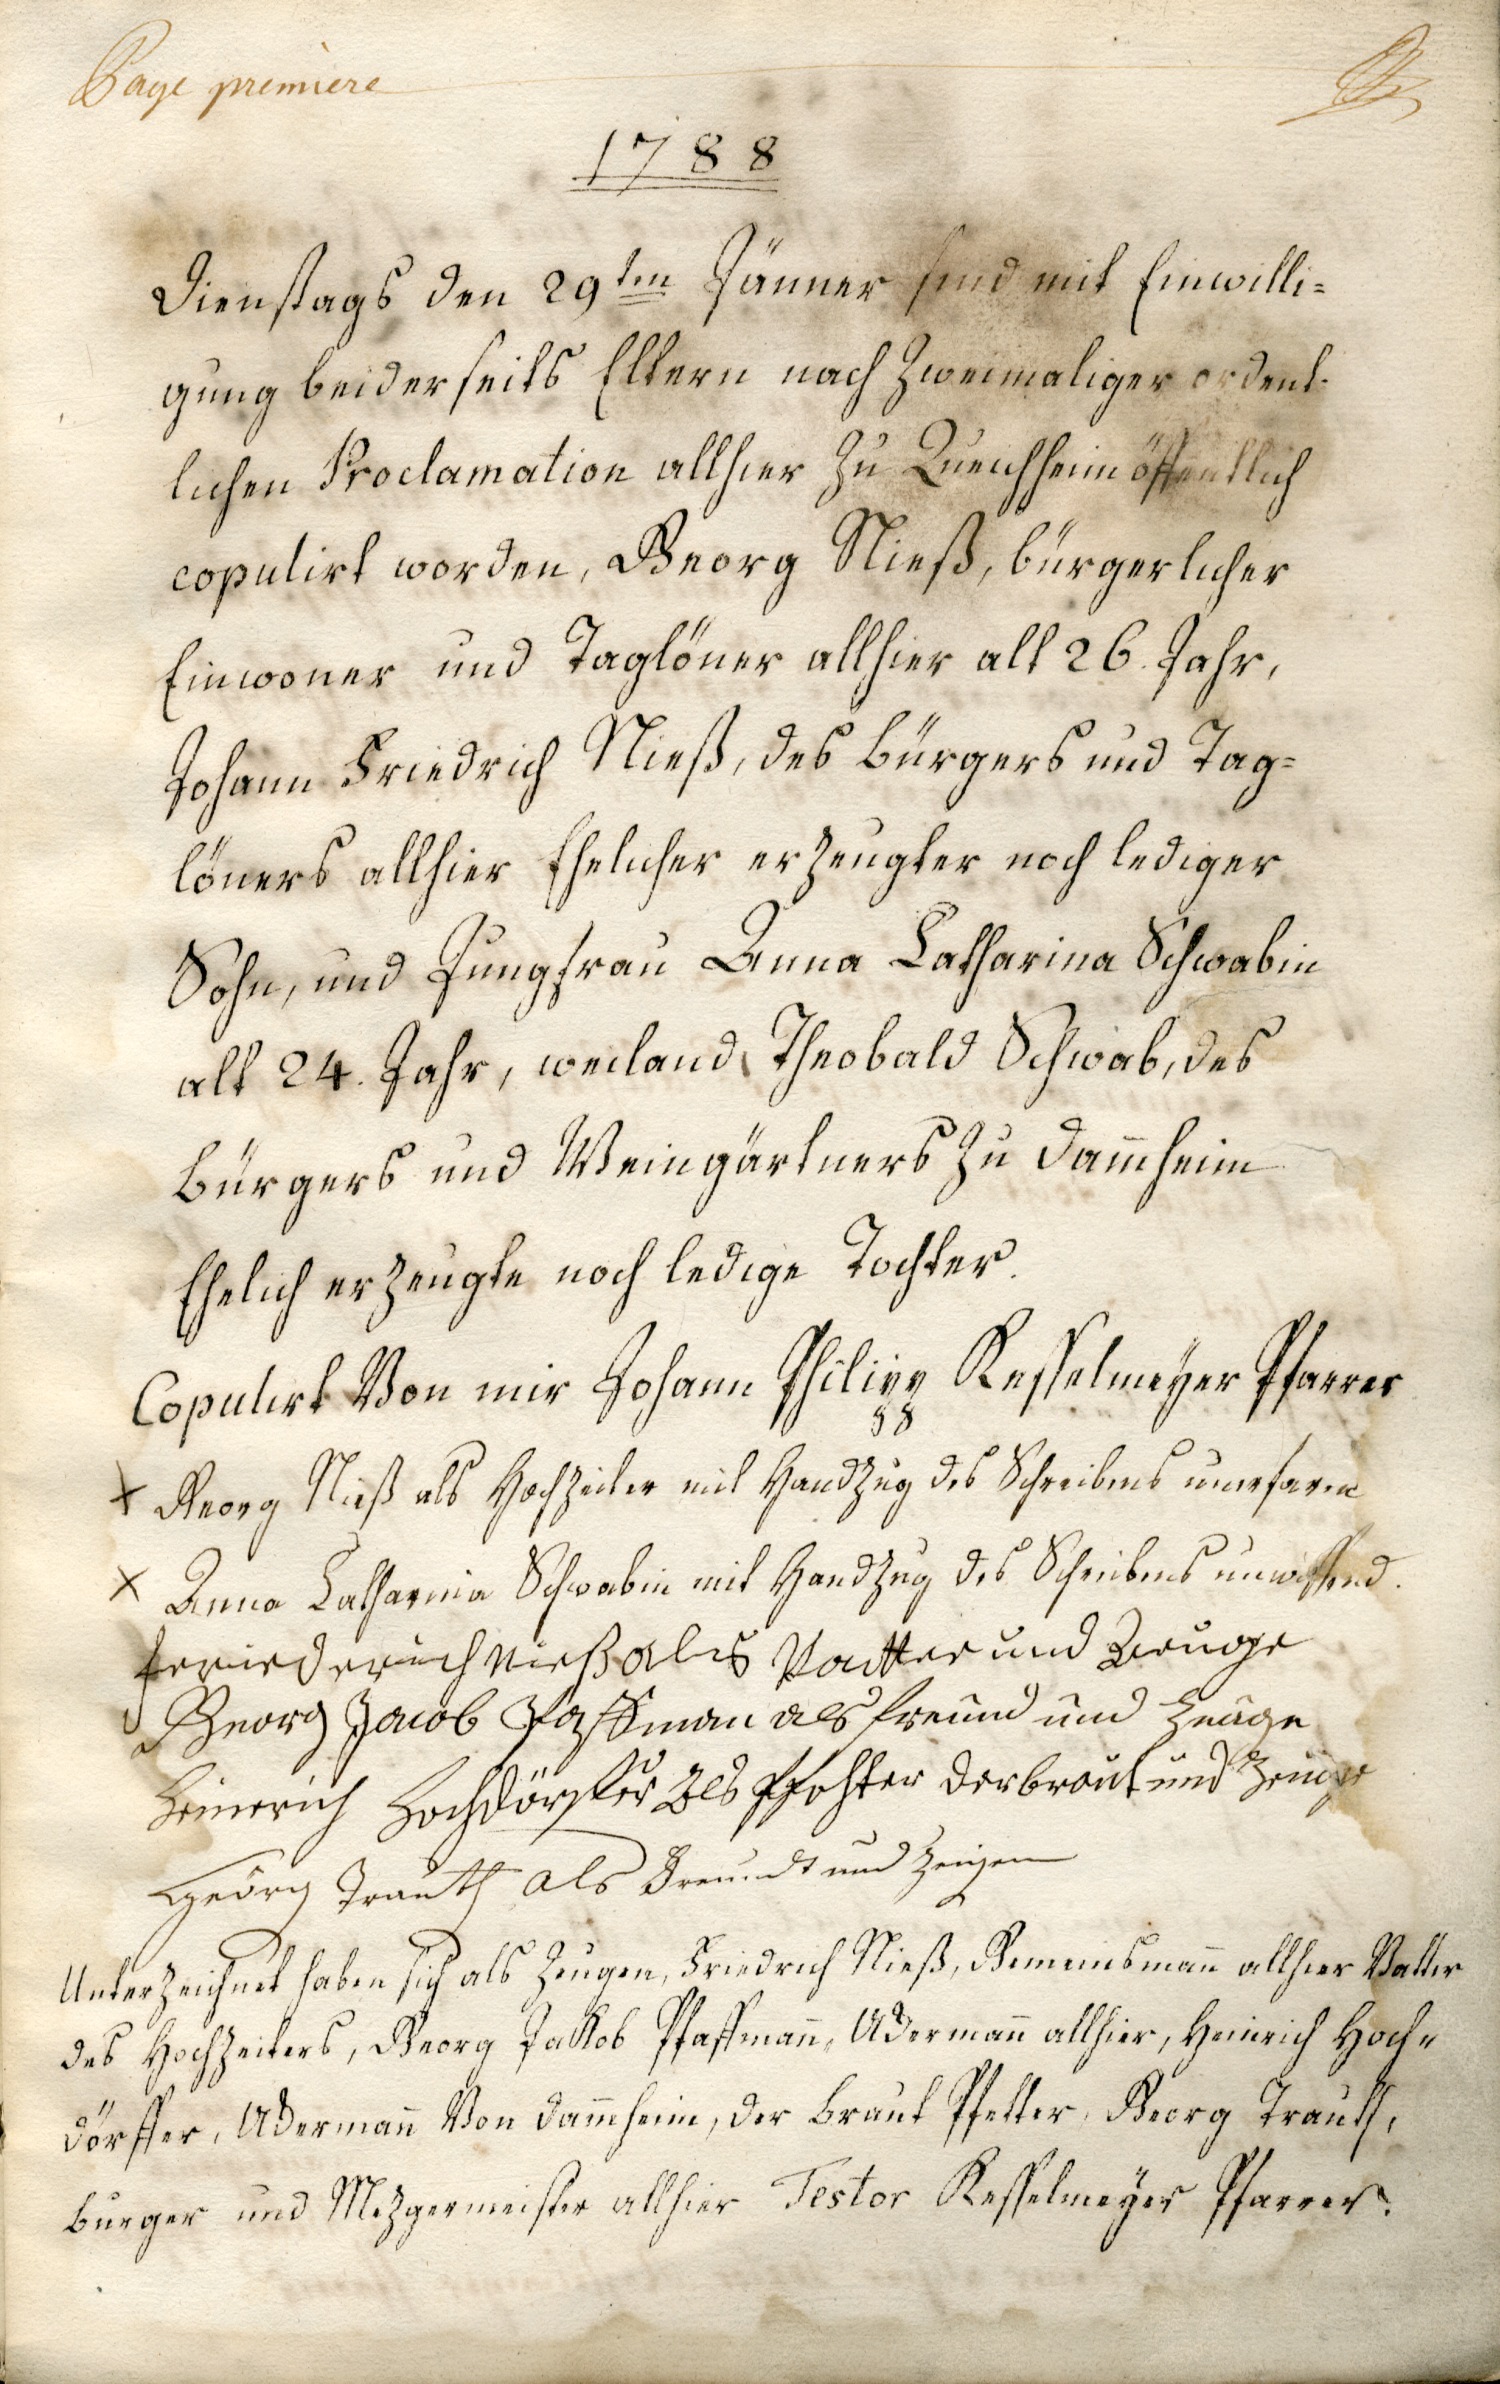 Page première
1788
Dienstags den 29ten Jänner sind mit Einwilli=
gung beiderseits Eltern nach zweimaliger ordent-
lichen Proclamation allhier zu Queichheim öffentlich
copulirt worden, Georg Nieß, bürgerlicher
Einwoner und Taglöner allhier alt 26. Jahr,
Johann Friedrich Nieß, des Bürgers und Tag=
löners allhier Ehelicher erzeugter noch lediger
Sohn, und Jungfrau Anna Catharina Schwabin
alt 24. Jahr, weiland Theobald Schwab, des
Bürgers und Weingärtners zu Dam̄heim
Ehelich erzeugte noch ledige Tochter.
Copulirt Von mir Johann Philipp Kesselmeÿer Pfarrer
+ Georg Nieß als Hochzeiter mit Handzug des Schreibens unerfaren
× Anna Catharina Schwabin mit Handzug des Schreibens unwissend.
frriederich Nieß als Vatter und Zeuge
Georg Jacob Pfaffman als freund und Zeuge
Heinerich Hochdörffer als Pfohter der braut und Zeuge
Geörg Trauth als Freundt und Zeigen
Unterzeichnet haben sich als Zeugen, Friedrich Nieß, Gemeinsman̄ allhier Vatter
des Hochzeiters, Georg Jakob Pfaffman̄, Akermann allhier, Heinrich Hoch=
dörffer, Akerman̄ Von Dam̄heim, der Braut Pfetter, Georg Trauth,
Burger und Mezgermeister allhier Testor Kesselmeÿer Pfarrer.